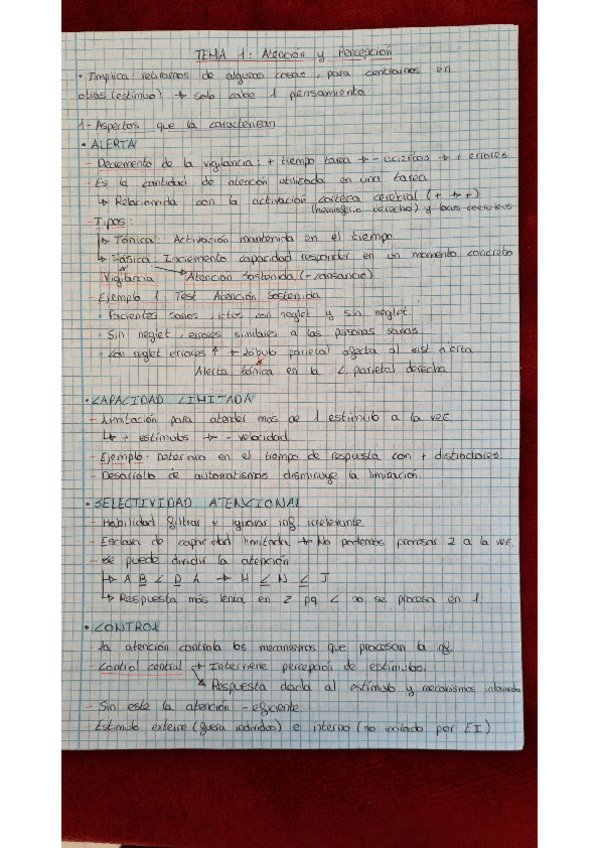 TEMA 1: Atención y Percepción
• Implica retirarnos de algunas cosas, para centrarnos en
otras (estímulo) → solo cabe 1 pensamiento
1- Aspectos que la caracterizan
• ALERTA
- Decremento de la vigilancia: + tiempo tarea → - aciertos → + errores
- Es la cantidad de atención utilizada en una tarea
↳ Relacionada con la activación corteza cerebral (+ → +)
(hemisferio derecho) y locus coeruleus
- Tipos:
↳ Tónica: Activación mantenida en el tiempo
↳ Fásica: Incremento capacidad responder en un momento concreto
Vigilancia → Atención Sostenida (- cansancio)
- Ejemplo 1: Test Atención Sostenida
• Pacientes sanos, ictus con neglet y sin neglet.
• Sin neglet, errores similares a las personas sanas
• Con neglet errores ↑ → lóbulo parietal afecta al sist alerta
Alerta tónica en la C. parietal derecha
• CAPACIDAD LIMITADA
- Limitación para atender más de 1 estímulo a la vez
↳ + estímulos → - velocidad
- Ejemplo: Deterioro en el tiempo de respuesta con + distractores.
- Desarrollo de automatismos disminuye la limitación.
• SELECTIVIDAD ATENCIONAL
- Habilidad filtrar e ignorar inf. irrelevante.
- Esclava de capacidad limitada → No podemos procesar 2 a la vez.
- Se puede dividir la atención
↳ A B C D A → H C N C J
↳ Respuesta más lenta en 2 pq C no se procesa en 1
• CONTROL
- La atención controla los mecanismos que procesan la inf.
- Control central → Interviene percepción de estímulos.
↘ Respuesta dada al estímulo y mecanismos
- Sin este la atención - eficiente
Estímulo externo (fuera individuo) e interno (no iniciado por EI)